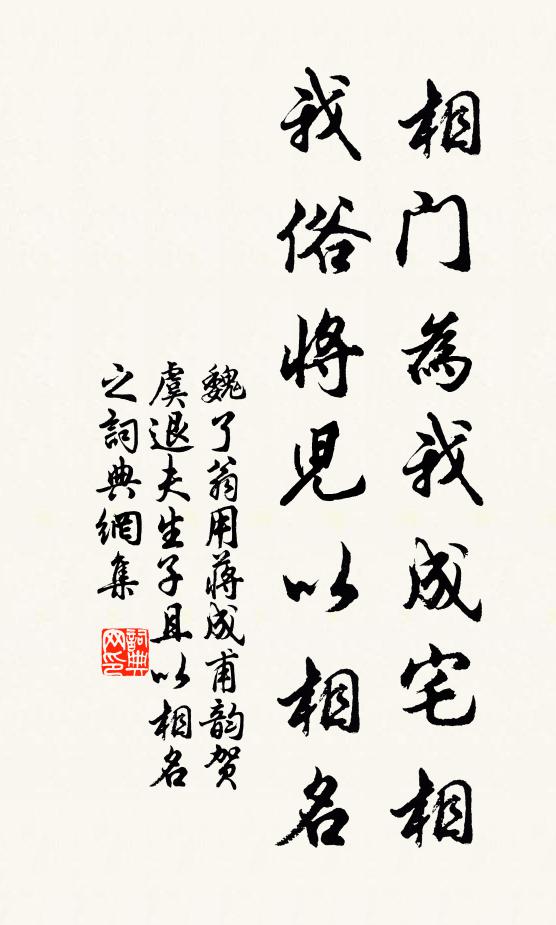 相门為我成宅相
我俗將児以相名
魏了翁用蔣成甫韵贺
虞退夫生子且以相名
之詞典網集
詞典网印